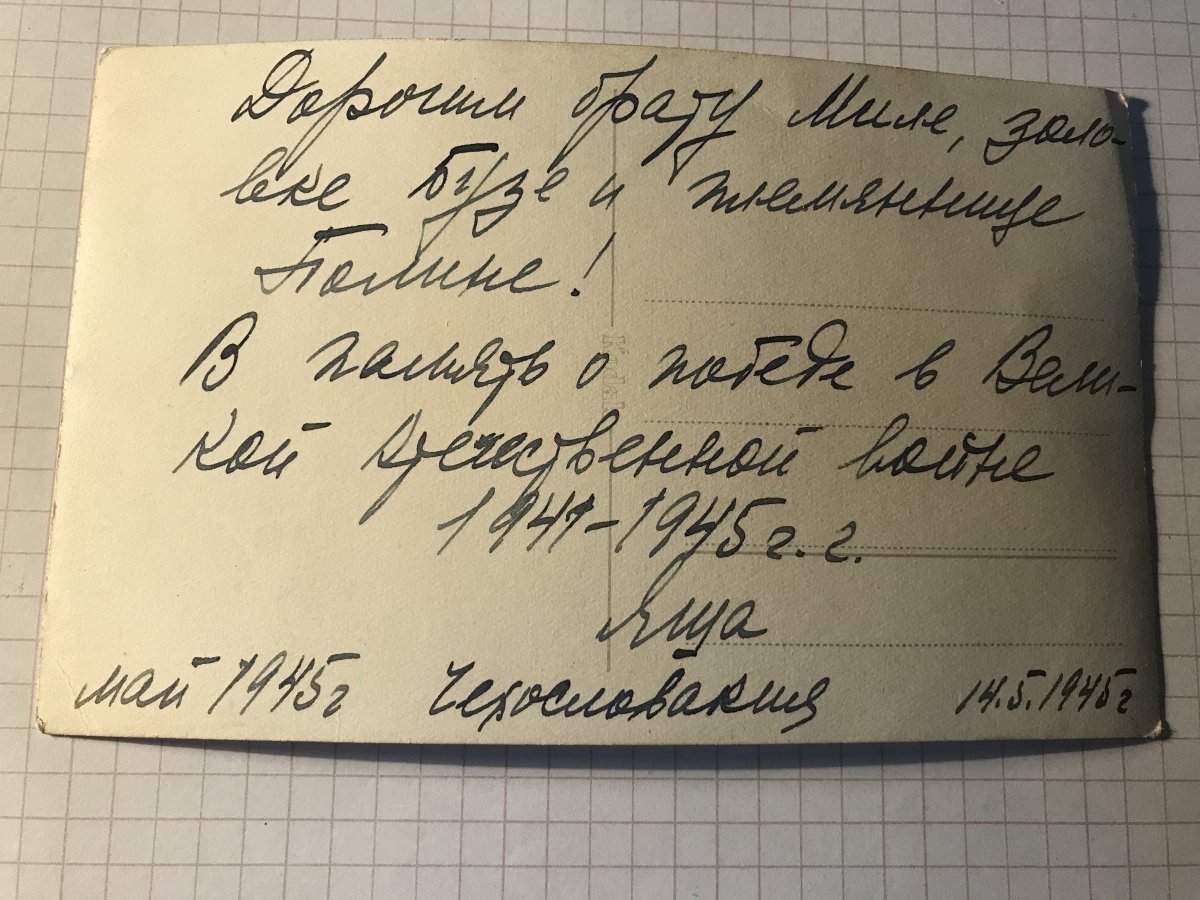 Дорогим брату Миле, золо-
вке Бузе и племяннице
Полине!
В память о победе в Вели-
кой Отечественной войне
1941-1945 г. г.
Яша
май 1945 г Чехословакия 14.5.1945 г